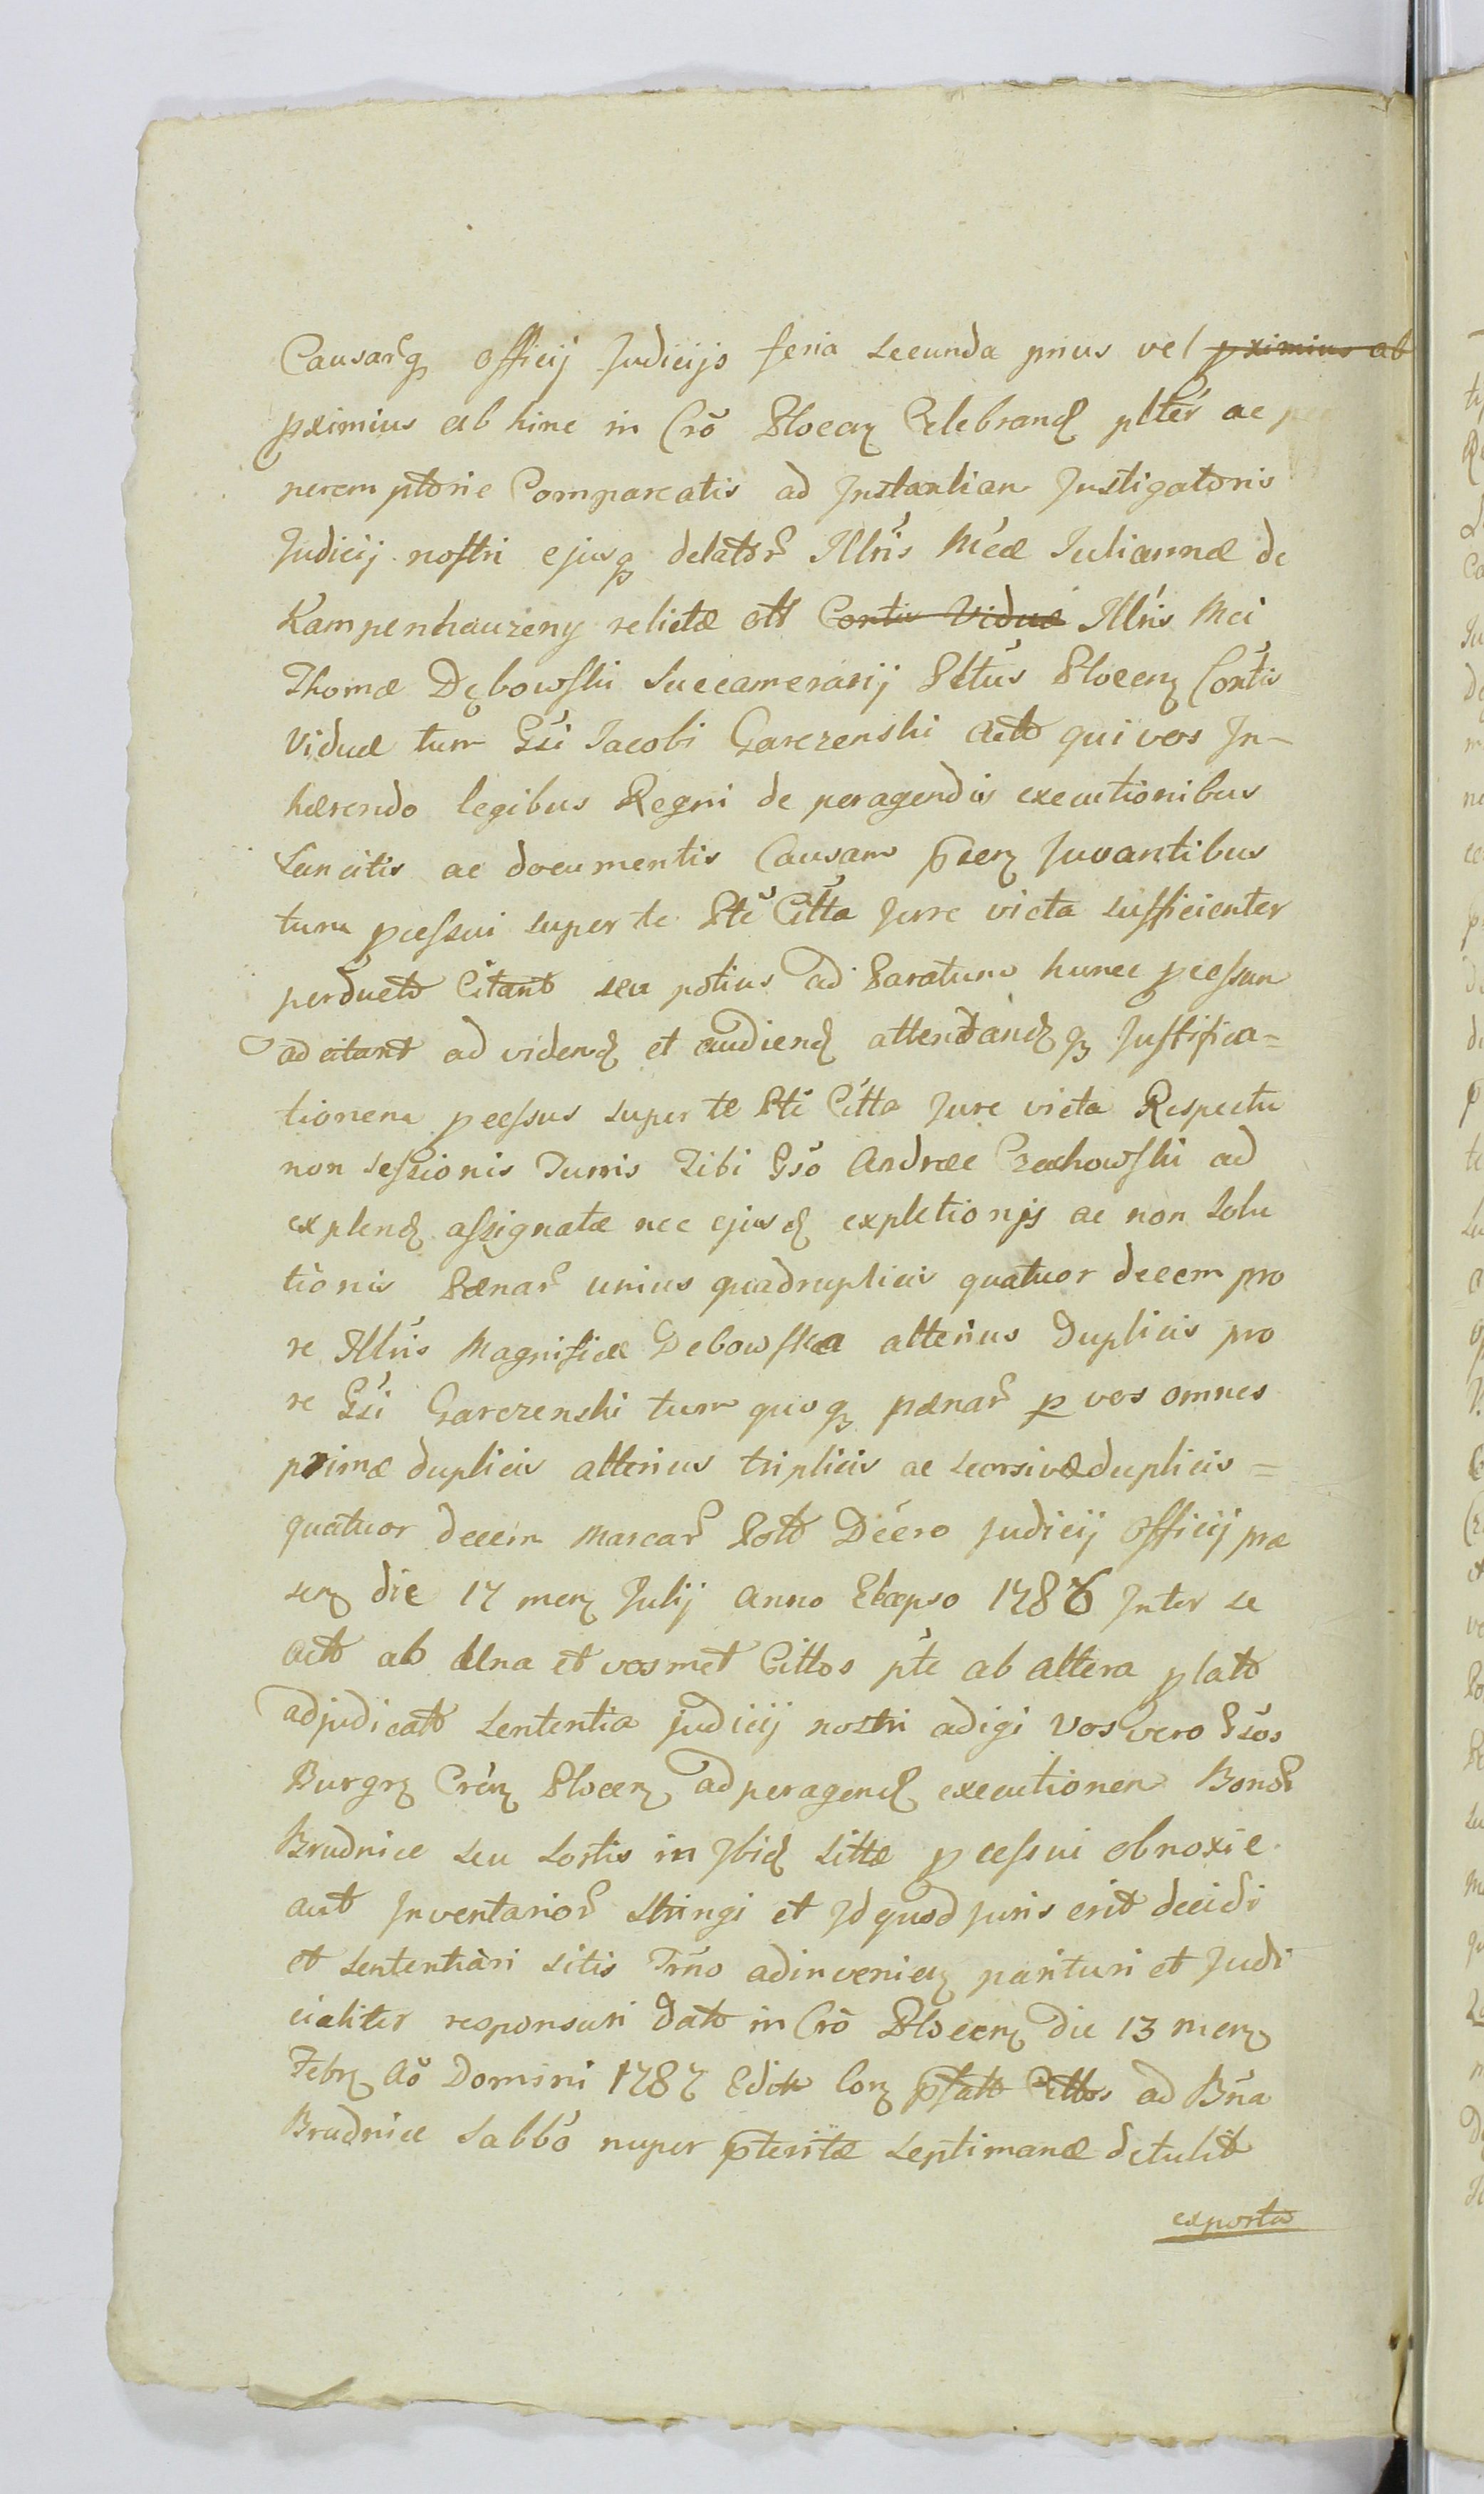 Causarq officij Judicijs feria secunda prius vel pximius ab
pximius ab hinc in Crõ Plocen Celebrand pltér ac pe
peremptorie Compareatis ad Instantiam Instigatoris
Judicij nostri ejusq delator Illris Mcæ Juliannæ de
Kampenhauzeny relictæ ott Contis Viduæ Illris Mci
Thomæ Dębowski Succamerarij Pltus Plocen Contis
Viduæ tum Gsi Jacobi Garczenski Actt qui vos In-
hærendo legibus Regni de peragendis executionibus
Sancitis ac documentis Causam pcen Juvantibus
tum pcessui super te Ptẽ Citta Jure victa sufficienter
perduct Citant seu potius ad Paratum hunce pcessum
adcitant ad videnđ et audienđ attentandq Justifica=
tionem pcessus super te Pte Citta Jure victa Respectu
non Sessionis Turris Tibi Gso Andræe Czachowski ad
explenđ assignatæ nec ejusđ expletionis ac non Solu
tionis Pænar unius quadruplicis quatuor decem pro
re Illris Magnificæ Debowska alterius Duplicis pro
re Gsi Garczenski tum quoq pænar p vos omnes
primæ duplicis alterius triplicis ac Seorsivæ duplicis =
quatuor decem Marcar Pott Décro Judicij Officij præ
sen die 17 men Julij Anno Elapso 1786 Inter se
Actt ab Una et vosmet Cittos pte ab altera platt
adjudicatt Sententia Judicij nostri adigi Vos vero Gsos
Burgr Cren Plocen ad peragenđ executionem Bonor
Brudnice seu Sortis in Ibiđ Sittæ pcessui obnoxie
aut Inventarior Stringi et Id quod Juris erit decidi
et Sententiari Sitis Trño adinvenien parituri et Judi
cialiter responsuri Datt in Crõ Plocen Die 13 men
Febr Aõ Domini 1787 Edictt Con psatt Cittos ad Bña
Brudnice Sabbó nuper pteritæ Septimanæ detulit
exporta